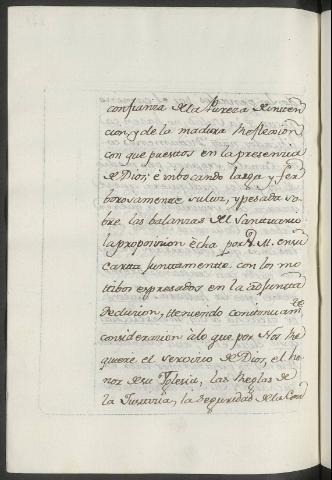 confianza de la Pureza de inten
cion, y de la madura Reflexion
con que puestos en la presencia
de Dios; è imbocando larga y fer
borosamente su luz, y pesada so
bre las balanzas del Santuario
la proposicion êcha por V. M. en su
carta juntamente con los mo
tibos expresados en la adjunta
Reducion, teniendo continuam.te
consideracion à lo que por Nos Re
quiere el servicio de Dios, el ho
nor de su Yglesia, las Reglas de
la Justicia, la seguridad de la Con